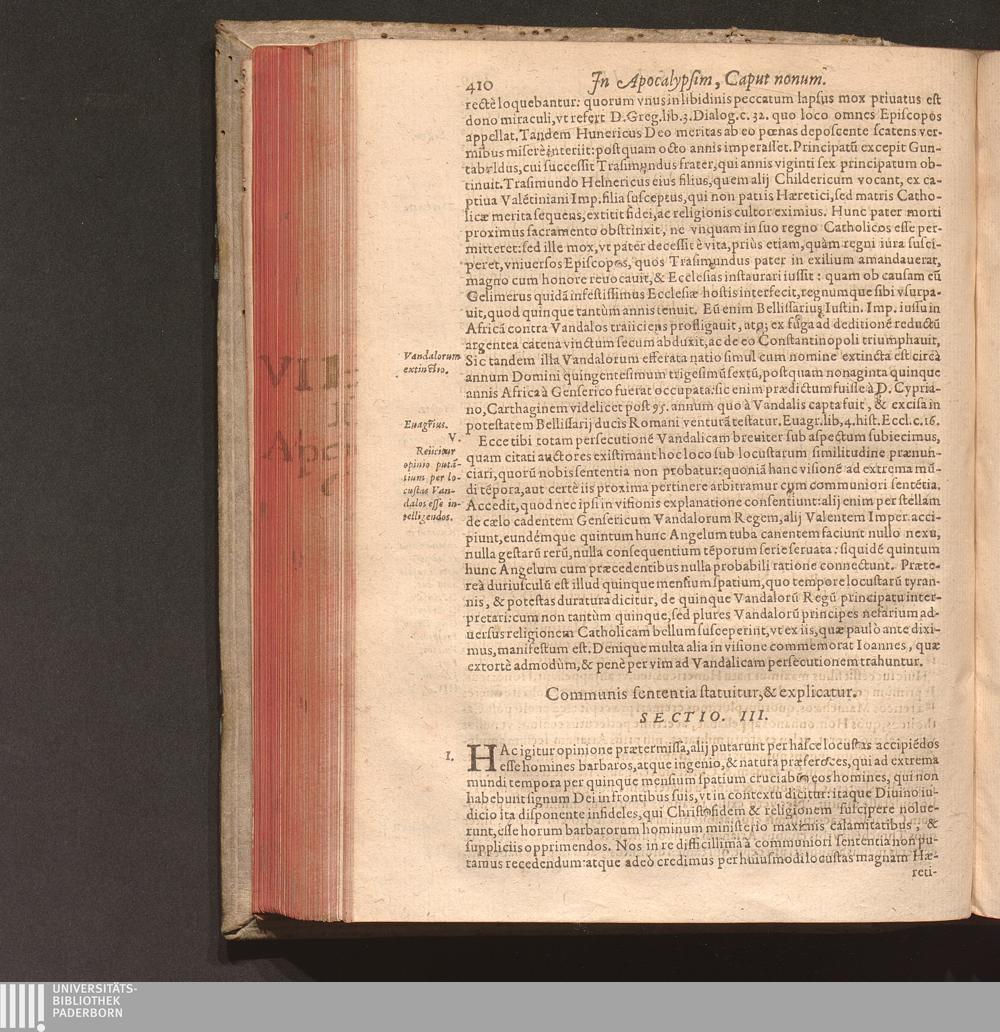 410 In Apocalypſim, Caput nonum.
rectè loquebantur: quorum vnus in libidinis peccatum lapſus mox priuatus eſt
dono miraculi, vt refert D. Greg. lib. 3. Dialog. c. 32. quo loco omnes Epiſcopos
appellat. Tandem Hunericus Deo meritas ab eo pœnas depoſcente ſcatens ver-
mibus miſerè interiit: poſtquam octo annis imperaſſet. Principatū excepit Gun-
tabundus, cui ſucceſſit Traſimundus frater, qui annis viginti ſex principatum ob-
tinuit. Traſimundo Helnericus eius filius, quem alij Childericum vocant, ex ca-
ptiua Valētiniani Imp. filia ſuſceptus, qui non patris Hæretici, ſed matris Catho-
licæ merita ſequens, extitit fidei, ac religionis cultor eximius. Hunc pater morti
proximus ſacramento obſtrinxit, ne vnquam in ſuo regno Catholicos eſſe per-
mitteret: ſed ille mox, vt pater deceſſit è vita, priùs etiam, quàm regni iura ſuſci-
peret, vniuerſos Epiſcopos, quos Traſimundus pater in exilium amandauerat,
magno cum honore reuocauit, & Eccleſias inſtaurari iuſſit: quam ob cauſam eū
Gelimerus quidā infeſtiſſimus Eccleſiæ hoſtis interfecit, regnumque ſibi vſurpa-
uit, quod quinque tantùm annis tenuit. Eū enim Belliſſarius Iuſtin. Imp. iuſſu in
Africā contra Vandalos traiiciens profligauit, atq; ex fuga ad deditionē reductū
argentea catena vinctum ſecum abduxit, ac de eo Conſtantinopoli triumphauit,
Vandalorum extinctio.
Sic tandem illa Vandalorum efferata natio ſimul cum nomine extincta eſt circà
annum Domini quingenteſimum trigeſimū ſextū, poſtquam nonaginta quinque
annis Africa à Genſerico fuerat occupata: ſic enim prædictum fuiſſe à D. Cypria-
no, Carthaginem videlicet poſt 95. annum quo à Vandalis capta fuit, & exciſa in
Euagrius.
poteſtatem Belliſſarij ducis Romani venturā teſtatur. Euagr. lib, 4. hiſt. Eccl. c. 16.
V.
Reiicitur
opinio putā-
tium per lo-
cuſtas Van-
dalos eſſe in-
telligendos.
Ecce tibi totam perſecutionē Vandalicam breuiter ſub aſpectum ſubiecimus,
quam citati auctores exiſtimant hoc loco ſub locuſtarum ſimilitudine prænun-
ciari, quorū nobis ſententia non probatur: quoniā hanc viſionē ad extrema mū-
di tēpora, aut certè iis proxima pertinere arbitramur cum communiori ſentētia.
Accedit, quod nec ipſi in viſionis explanatione conſentiunt: alij enim per ſtellam
de cælo cadentem Genſericum Vandalorum Regem, alij Valentem Imper. acci-
piunt, eundémque quintum hunc Angelum tuba canentem faciunt nullo nexu,
nulla geſtarū rerū, nulla conſequentium tēporum ſerie ſeruata: ſiquidē quintum
hunc Angelum cum præcedentibus nulla probabili ratione connectunt. Præte-
reà duriuſculū eſt illud quinque menſium ſpatium, quo tempore locuſtarū tyran-
nis, & poteſtas duratura dicitur, de quinque Vandalorū Regū principatu inter-
pretari: cum non tantùm quinque, ſed plures Vandalorū principes nefarium ad-
uerſus religionem Catholicam bellum ſuſceperint, vt ex iis, quæ paulò ante dixi-
mus, manifeſtum eſt. Denique multa alia in viſione commemorat Ioannes, quæ
extortè admodùm, & penè per vim ad Vandalicam perſecutionem trahuntur.
Communis ſententia ſtatuitur, & explicatur.
SECTIO. III.
I.
HAc igitur opinione prætermiſſa, alij putarunt per haſce locuſtas accipiēdos
eſſe homines barbaros, atque ingenio, & natura præferoces, qui ad extrema
mundi tempora per quinque menſium ſpatium cruciabūt eos homines, qui non
habebunt ſignum Dei in frontibus ſuis, vt in contextu dicitur: itaque Diuino iu-
dicio ita diſponente infideles, qui Chriſti fidem & religionem ſuſcipere nolue-
runt, eſſe horum barbarorum hominum miniſterio maximis calamitatibus, &
ſuppliciis opprimendos. Nos in re difficillima à communiori ſententia non pu-
tamus recedendum: atque adeò credimus per huiuſmodi locuſtas magnam Hæ-
reti-
UNIVERSITÄTS-
BIBLIOTHEK
PADERBORN